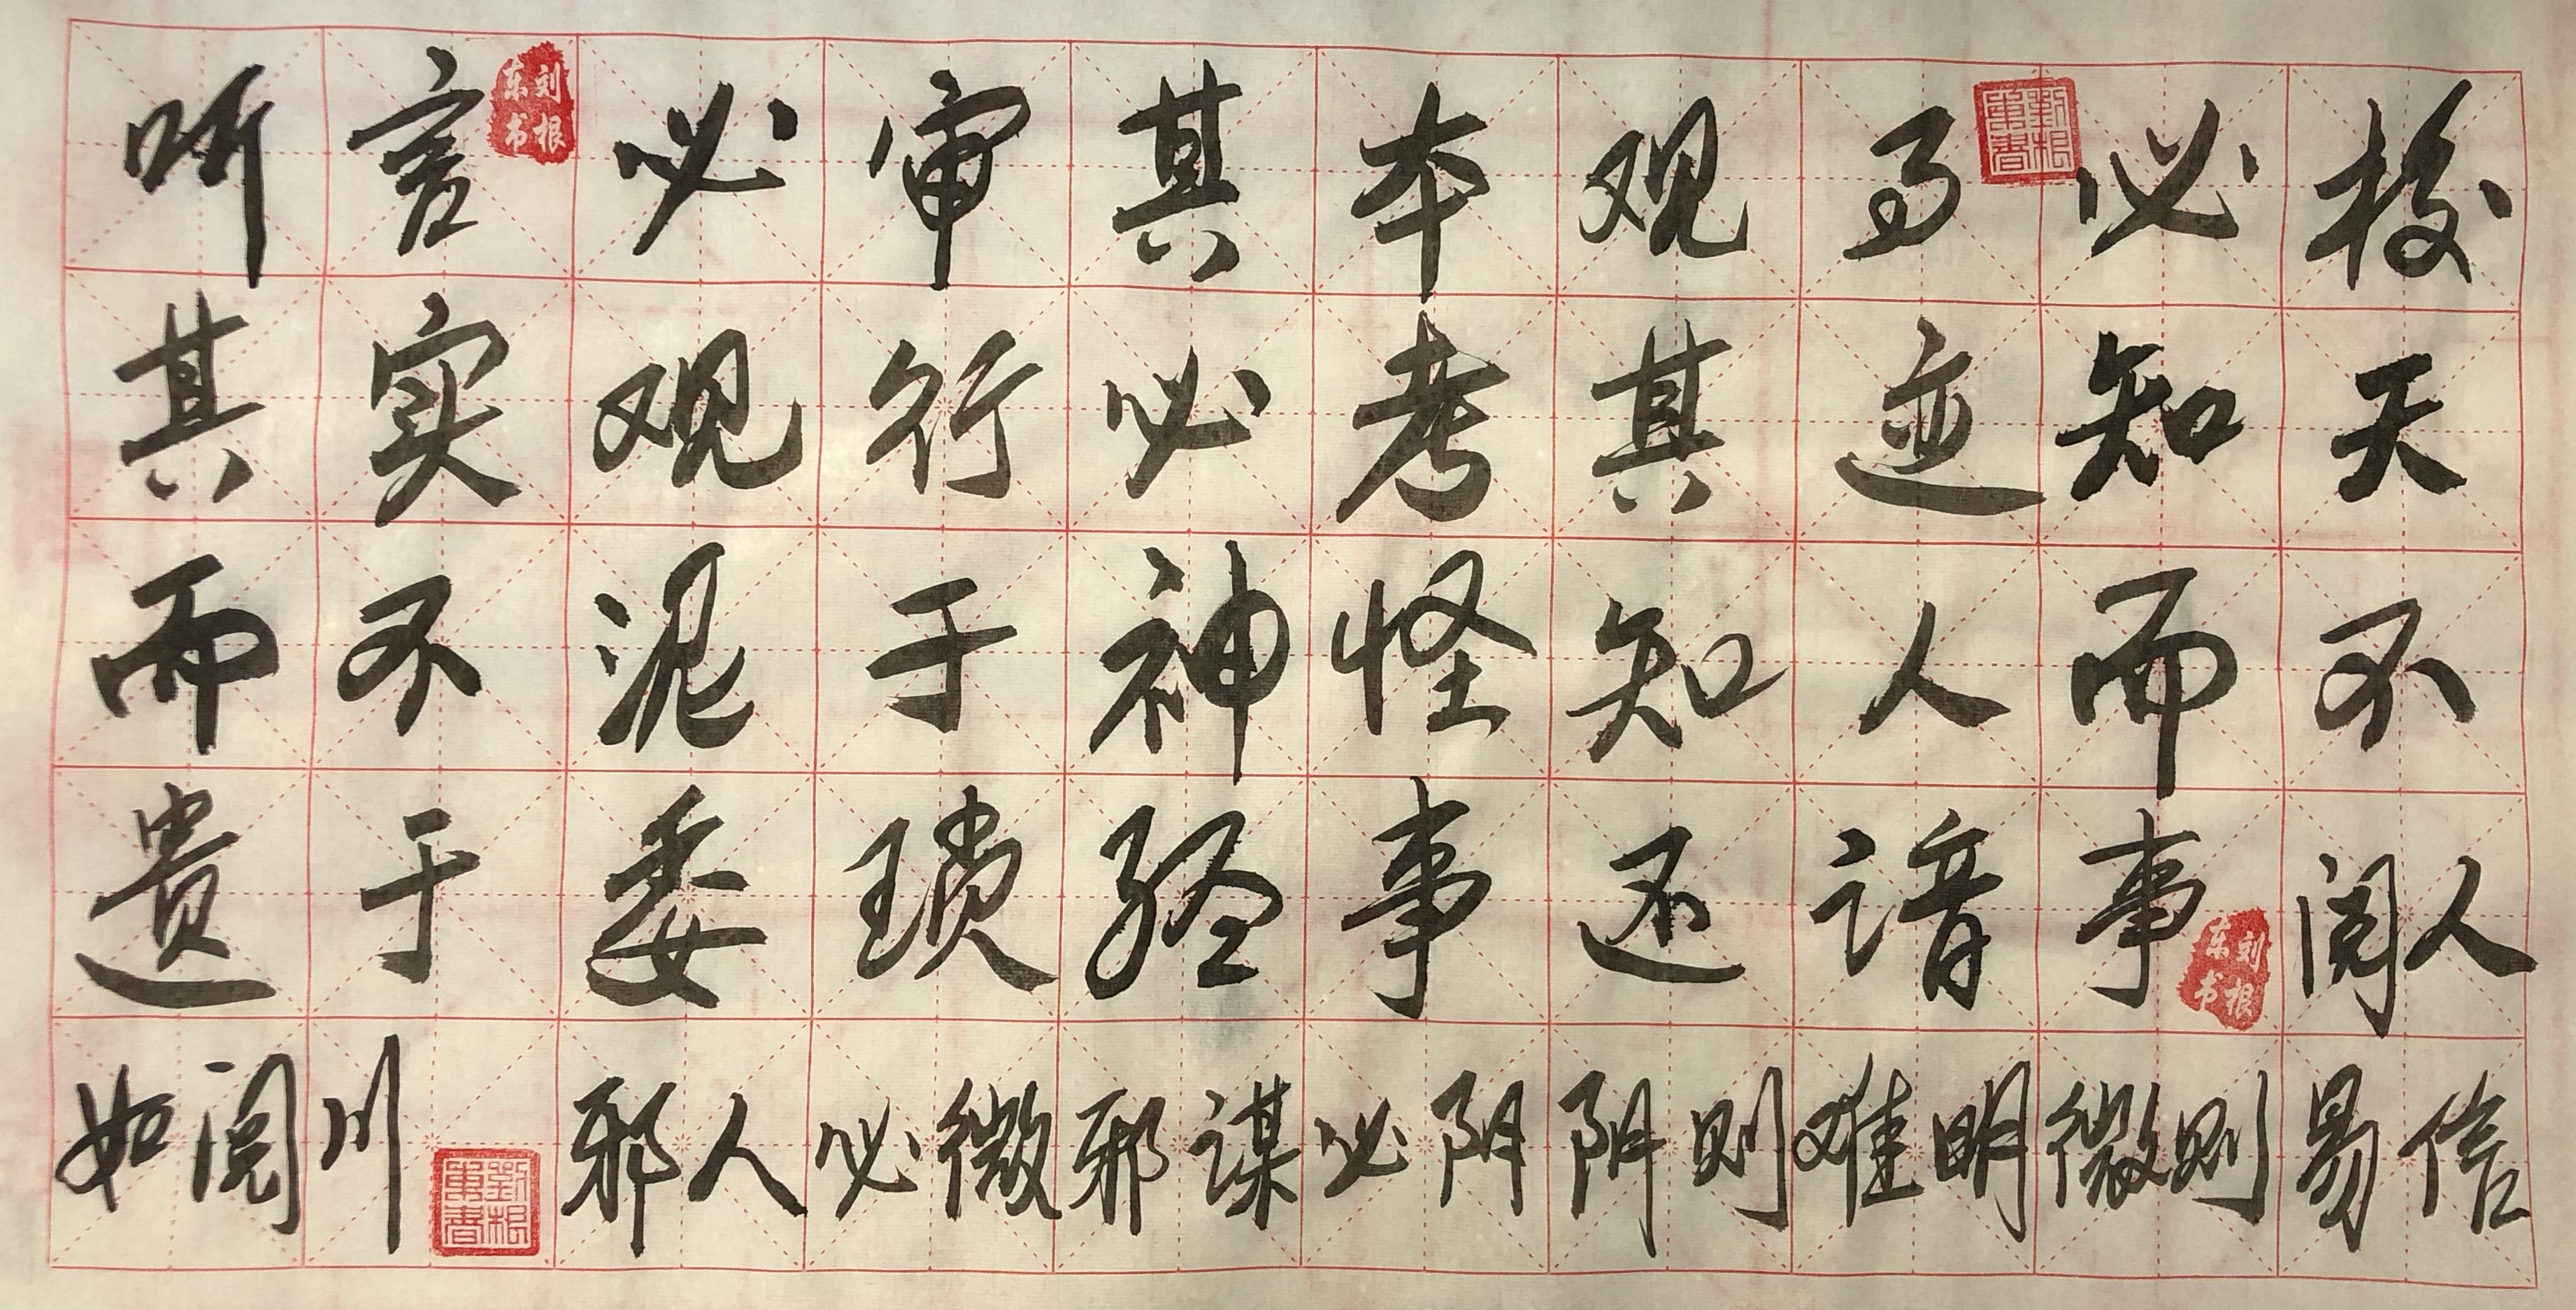 听言必审其本观事必校
其实观行必考其迹知天
而不泥于神怪知人而不
遗于委琐经事还谙事阅人
如阅川邪人必微邪谋必阴阴则难明微则易信
刘根东书
劉根東書
刘根东书
劉根東書